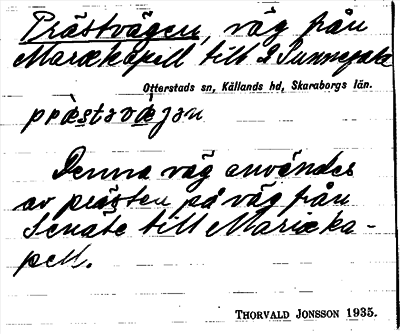 Prästvägen, väg från
Mariækapell till S Sunnersta
Otterstads sn, Kållands hd, Skaraborgs län.
Denna väg användes
av prästen på väg från
Senäte till Mariæka-
pell.
THORVALD JONSSON 1935.